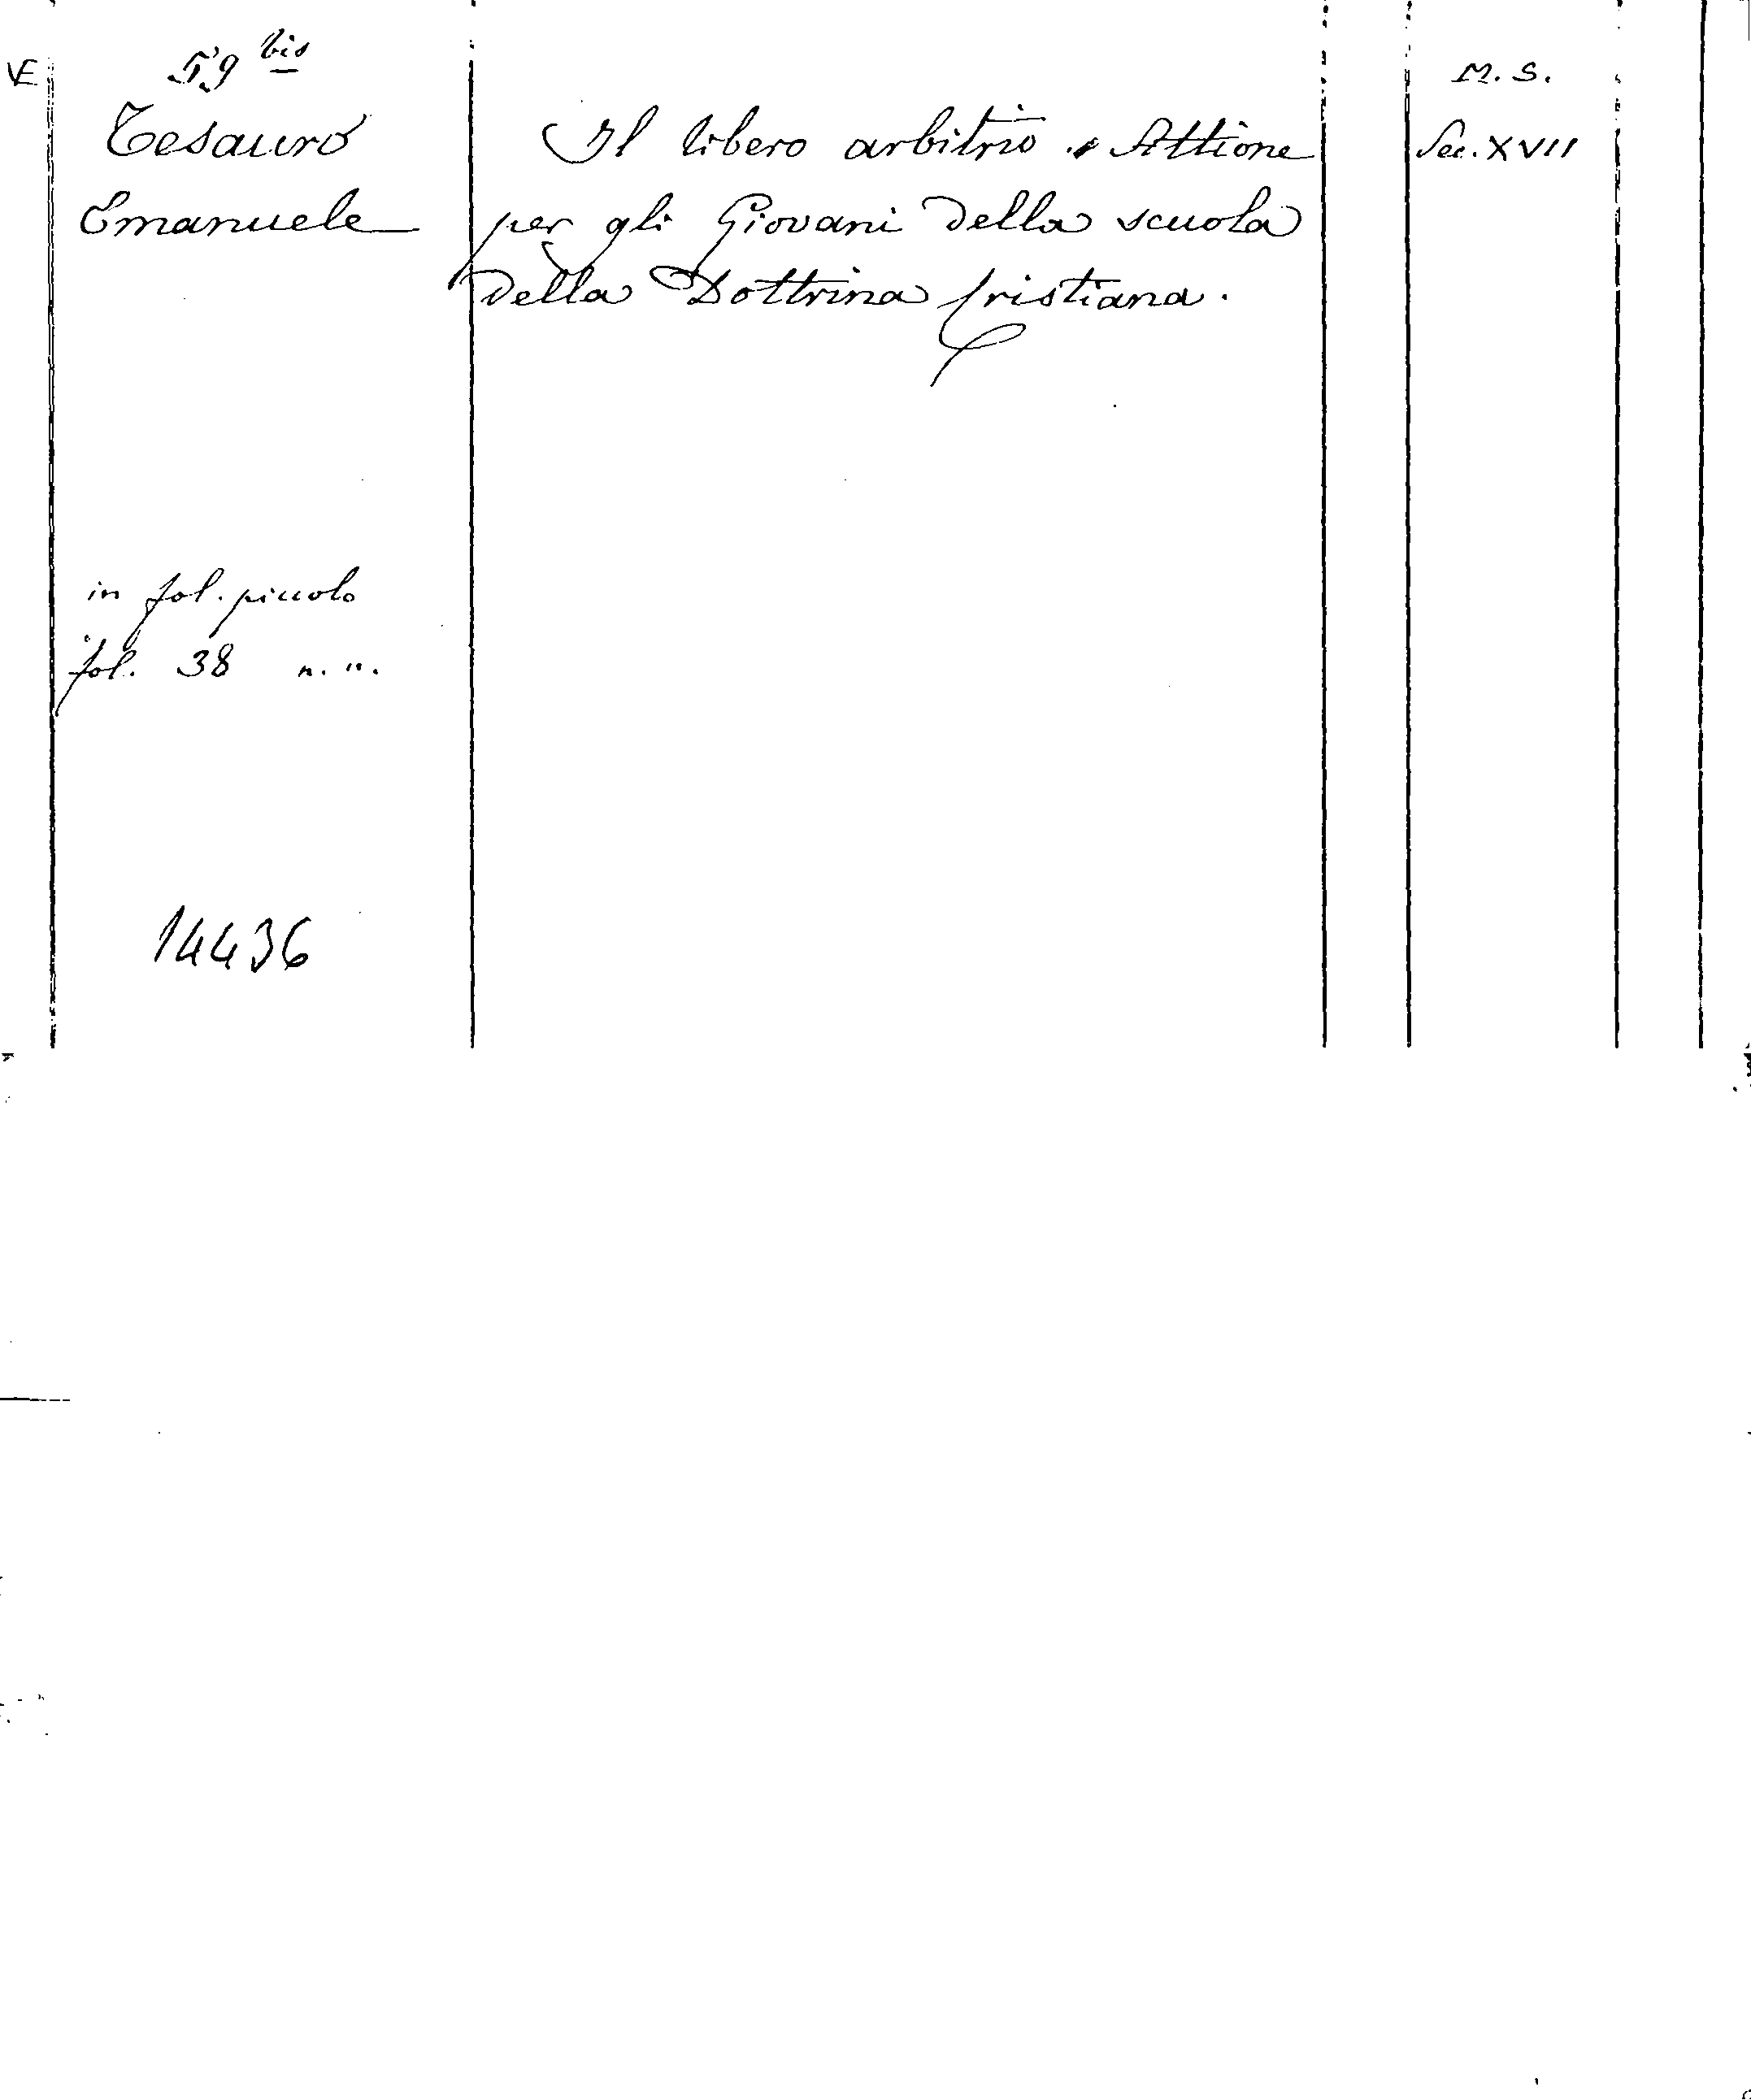 VE
59 bis
M. S.
Tesauro
Il libero arbitrio. Attione
Sec. XVII
Emanuele
per gli Giovani della scuola
della Dottrina Cristiana.
in fol. piccolo
fol. 38 n. n.
14436